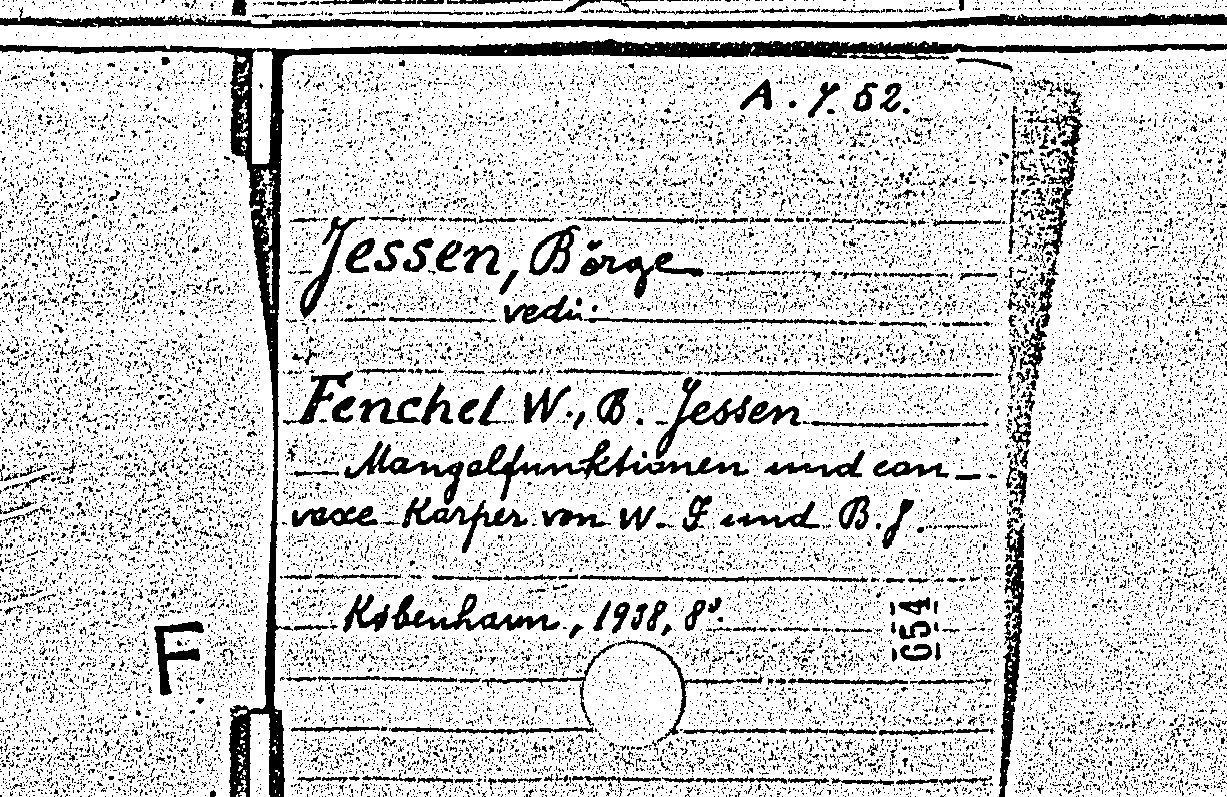 A. 7. 52.
Jessen, Börge
vedi:
Fenchel W., B. Jessen
Mangelfunktionen und con-
vexe Körper von W. F und B. J.
København, 1938, 8º.
654
F